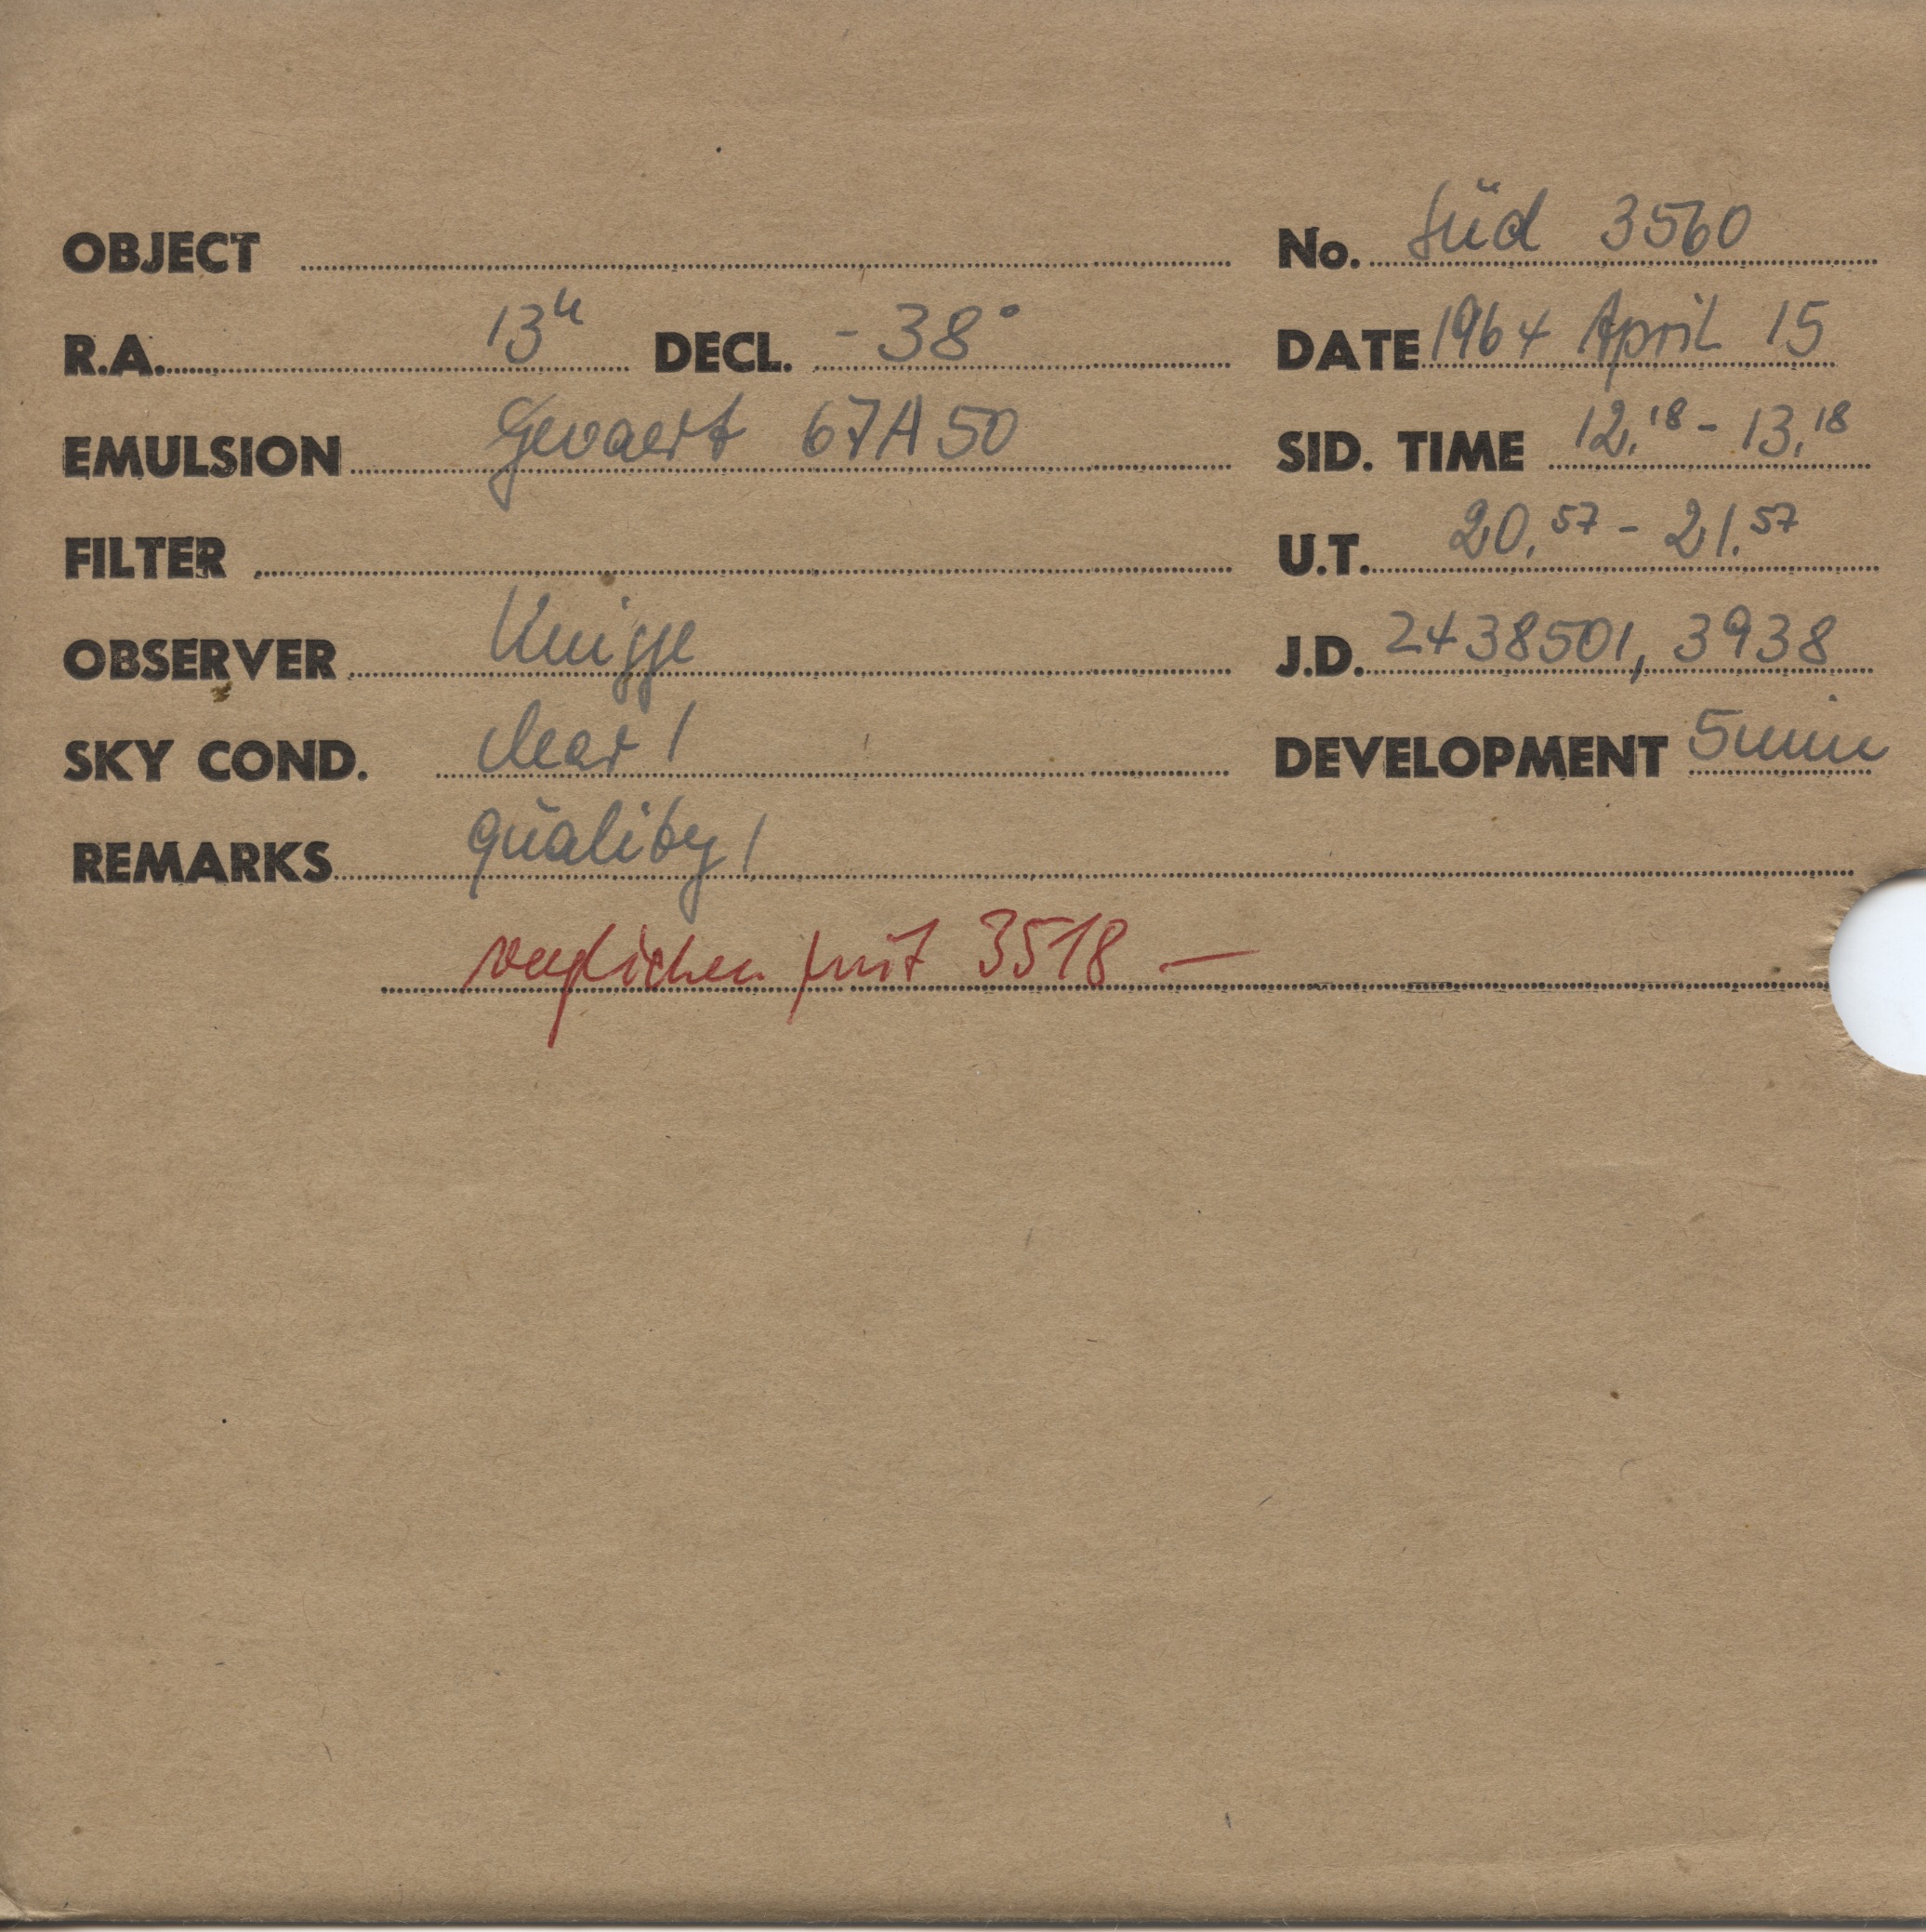 OBJECT No. Süd 3560
R.A. 13h DECL. -38° DATE 1964 April 15
EMULSION Gevaert 67A50 SID. TIME 12.18 - 13.18
FILTER U.T. 20.57 - 21.57
OBSERVER Knigge J.D. 2438501,3938
SKY COND. clear 1 DEVELOPMENT 5min
REMARKS quality 1
verglichen mit 3518 —